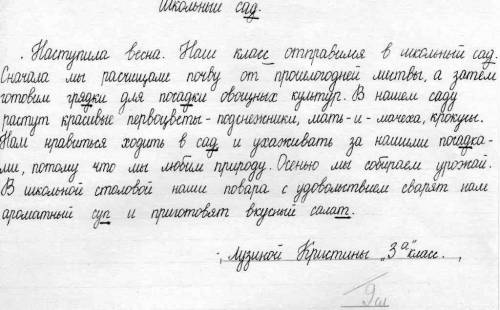 Школьный сад.
Наступила весна. Наш класс отправился в школьный сад.
Сначала мы расчищали почву от прошлогодней листвы, а затем
готовим грядки для посадки овощных культур. В нашем саду
растут красивые первоцветы - подснежники, мать-и-мачеха, крокусы.
Нам нравиться ходить в сад и ухаживать за нашими посадка-
ми, потому что мы любим природу. Осенью мы собираем урожай.
В школьной столовой наши повара с удовольствием сварят нам
ароматный суп и приготовят вкусный салат.
Лузиной Кристины "3а" класс.